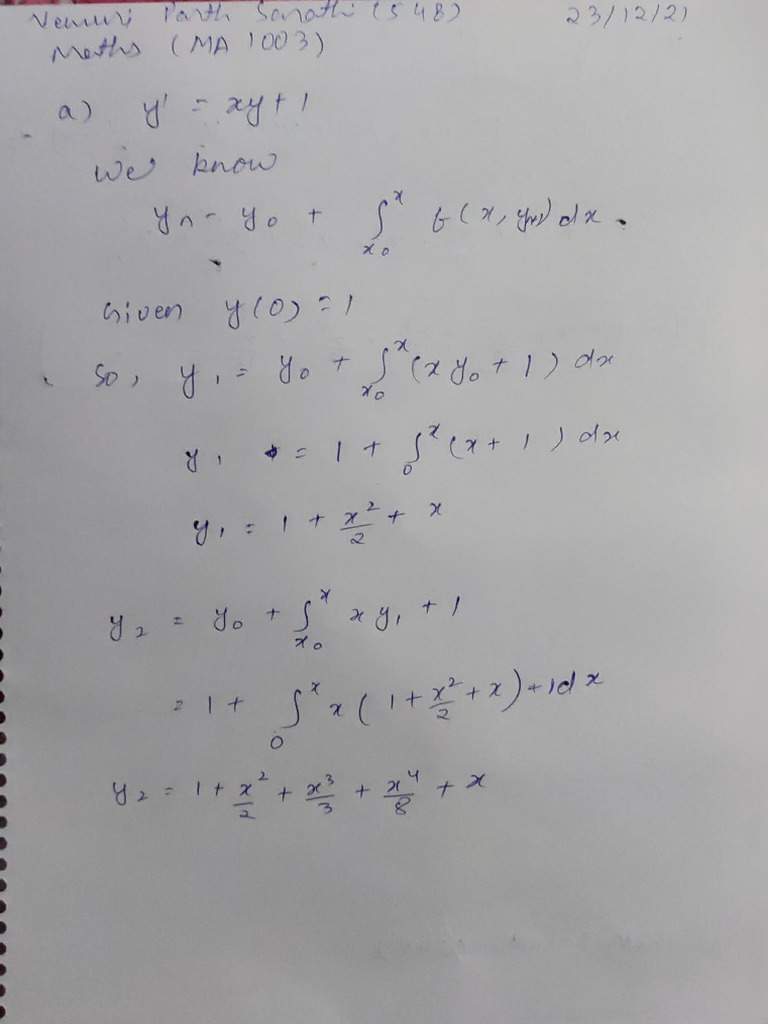 Vemuri Parth Sarathi (S 4B) 23/12/21
Maths (MA 1003)
a) y' = xy + 1
We know
yn = y0 + ∫x0^x f(x, yn-1) dx.
Given y(0) = 1
So, y1 = y0 + ∫x0^x (x y0 + 1) dx
y1 = 1 + ∫0^x (x + 1) dx
y1 = 1 + x^2/2 + x
y2 = y0 + ∫x0^x x y1 + 1
= 1 + ∫0^x x(1 + x^2/2 + x) + 1dx
y2 = 1 + x^2/2 + x^3/3 + x^4/8 + x